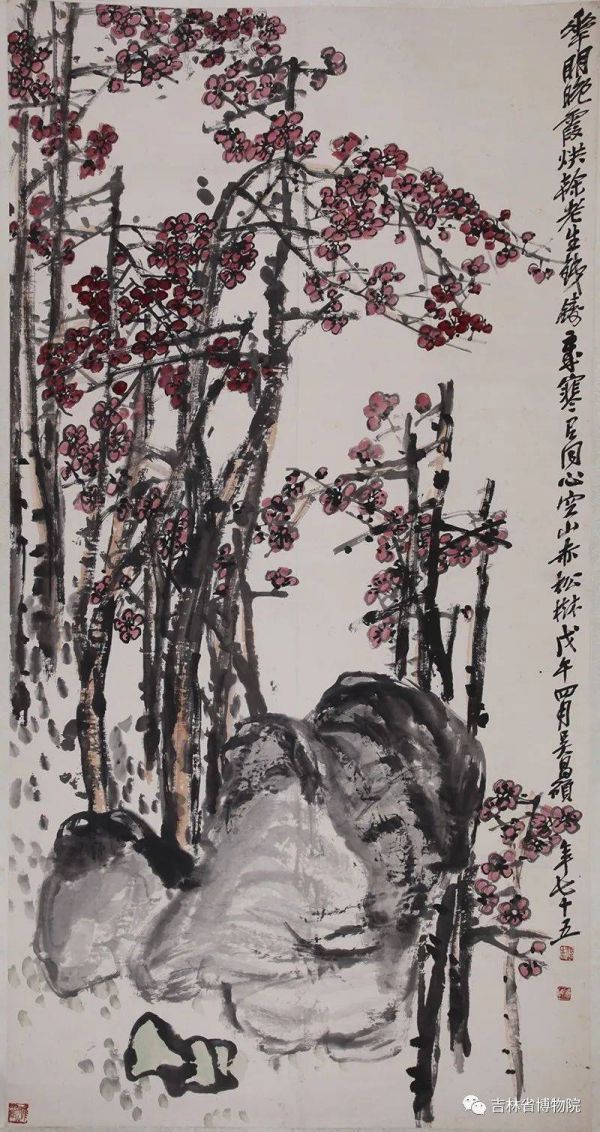 華開晚霞烘幹老生鐵鑄歲寒居同心空山赤松樹戊午四月吳昌碩年七十五
吉林省博物院